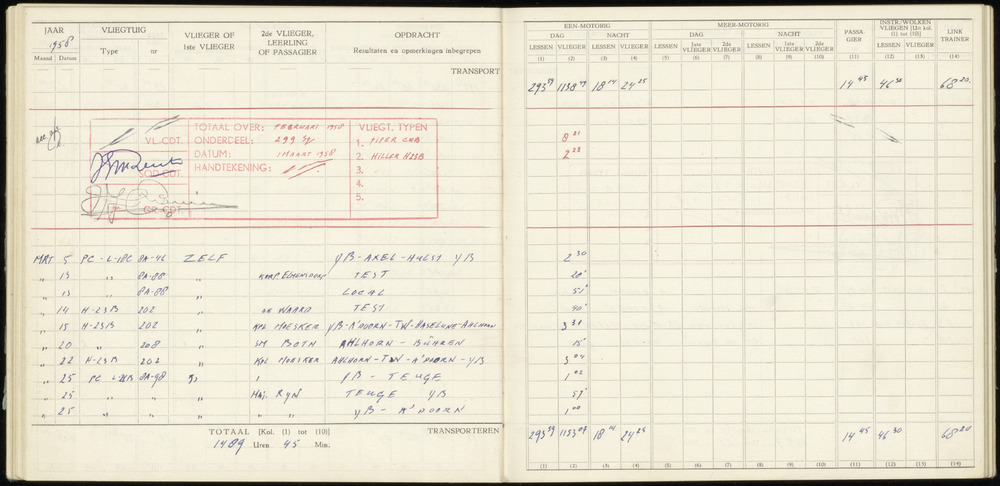 JAAR VLIEGTUIG VLIEGER OF 1ste VLIEGER 2de VLIEGER, LEERLING OF PASSAGIER OPDRACHT
1958 Type nr Resultaten en opmerkingen inbegrepen
Maand Datum
TRANSPORT
TOTAAL OVER: FEBRUARI 1958 VLIEGT. TYPEN
VL-CDT. ONDERDEEL: 299 Sq 1. PIPER CUB
DATUM: 1 MAART 1958 2. HILLER H23B
SQD-CDT. HANDTEKENING: 3.
4.
GR-CDT. 5.
MRT 5 PC-L-18C 8A-46 ZELF YB-AXEL-HULST YB
" 13 " 8A-88 " TEST
" 13 8A-88 " LOCAL
" 14 H-23B 202 " DE WAARD TEST
" 15 H-23B 202 " KPL MOESKER YB-A'DOORN-TW-HASELUNE-AHLHORN
" 20 " 208 " SM BOTH AHLHORN - BÜHREN
" 22 H-23B 202 " KPL MOESKER AHLHORN-TW-A'DOORN-YB
" 25 PC 8A-98 " YB - TEUGE
" 25 " " " MAJ. RYN TEUGE YB
" 25 " " " " YB - A'DOORN
TOTAAL [Kol. (1) tot (10)] TRANSPORTEREN
1489 Uren 45 Min.
EEN-MOTORIG MEER-MOTORIG INSTR./WOLKEN VLIEGEN [Un kol. (1) tot (10)]
DAG NACHT DAG NACHT PASSA-GIER LINK TRAINER
LESSEN VLIEGER LESSEN VLIEGER LESSEN 1ste VLIEGER 2de VLIEGER LESSEN 1ste VLIEGER 2de VLIEGER LESSEN VLIEGER
(1) (2) (3) (4) (5) (6) (7) (8) (9) (10) (11) (12) (13) (14)
293 59 18 14 24 25 14 45 46 30 68 20
8 21
2 28
2 30
20
51
40
3 31
15
3 04
1 02
57
1 00
293 59 1153 07 18 14 24 25 14 45 46 30 68 20
(1) (2) (3) (4) (5) (6) (7) (8) (9) (10) (11) (12) (13) (14)